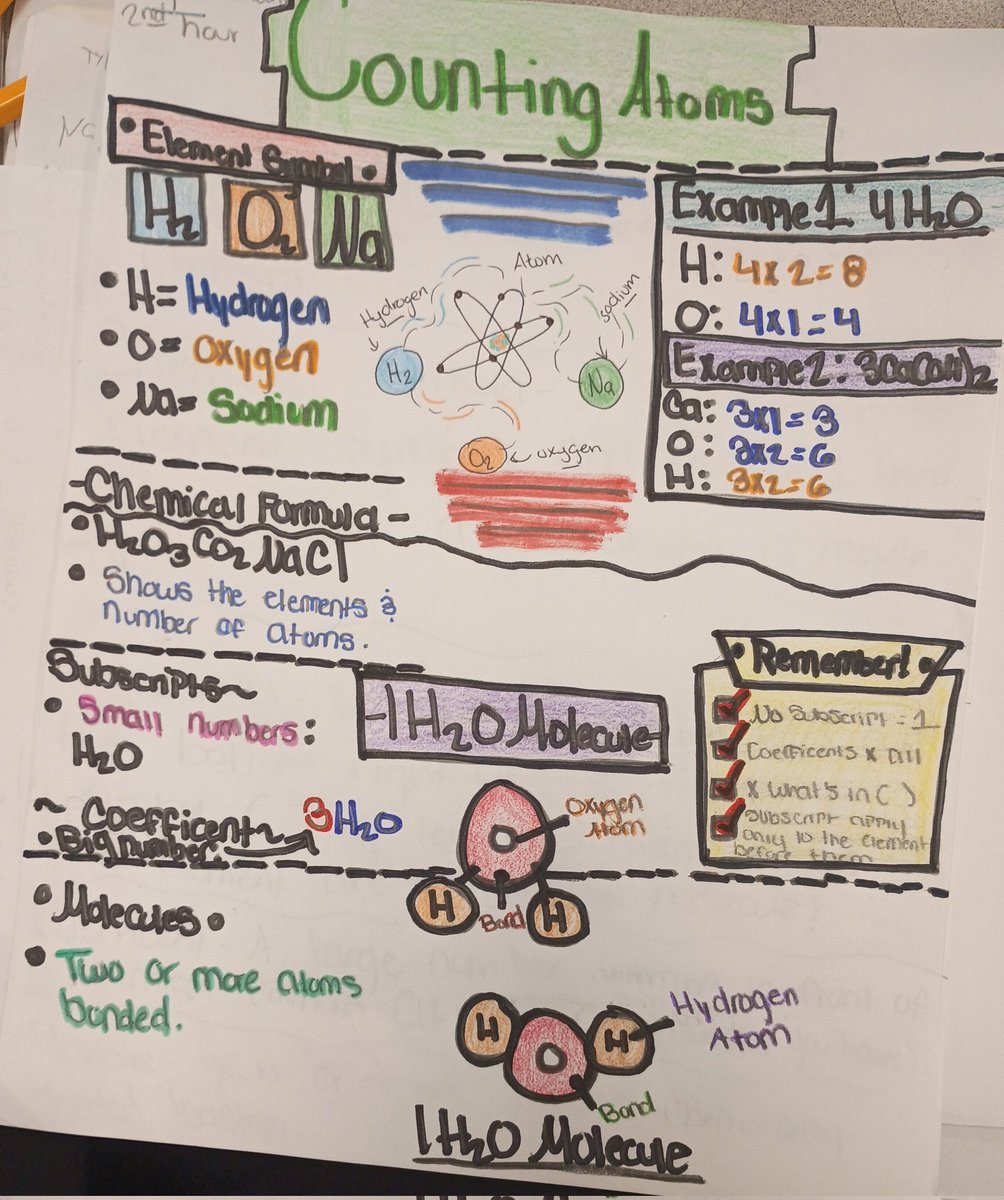 2nd hour
Counting Atoms
• Element Symbol •
H₂ O₂ Na
• H= Hydrogen
• O= Oxygen
• Na= Sodium
Atom
Hydrogen
sodium
H₂
Na
O₂
oxygen
Example 1: 4H₂O
H: 4x2=8
O: 4x1=4
Example 2: 3Ca(OH)₂
Ca: 3x1=3
O: 3x2=6
H: 3x2=6
-Chemical Formula-
• H₂O₃ CO₂ NaCl
• Shows the elements &
number of atoms.
Subscripts~
• Small numbers:
H₂O
~ Coefficent~ 3H₂O
• Big number
-1H₂O Molecule-
Oxygen
Atom
O
H
Bond
H
• Remember! •
No Subscript = 1
Coefficents x all
x What's in ( )
Subscript apply
only to the element
before them
• Molecules •
• Two or more atoms
bonded.
H
O
H
Hydrogen
Atom
Bond
1H₂O Molecule